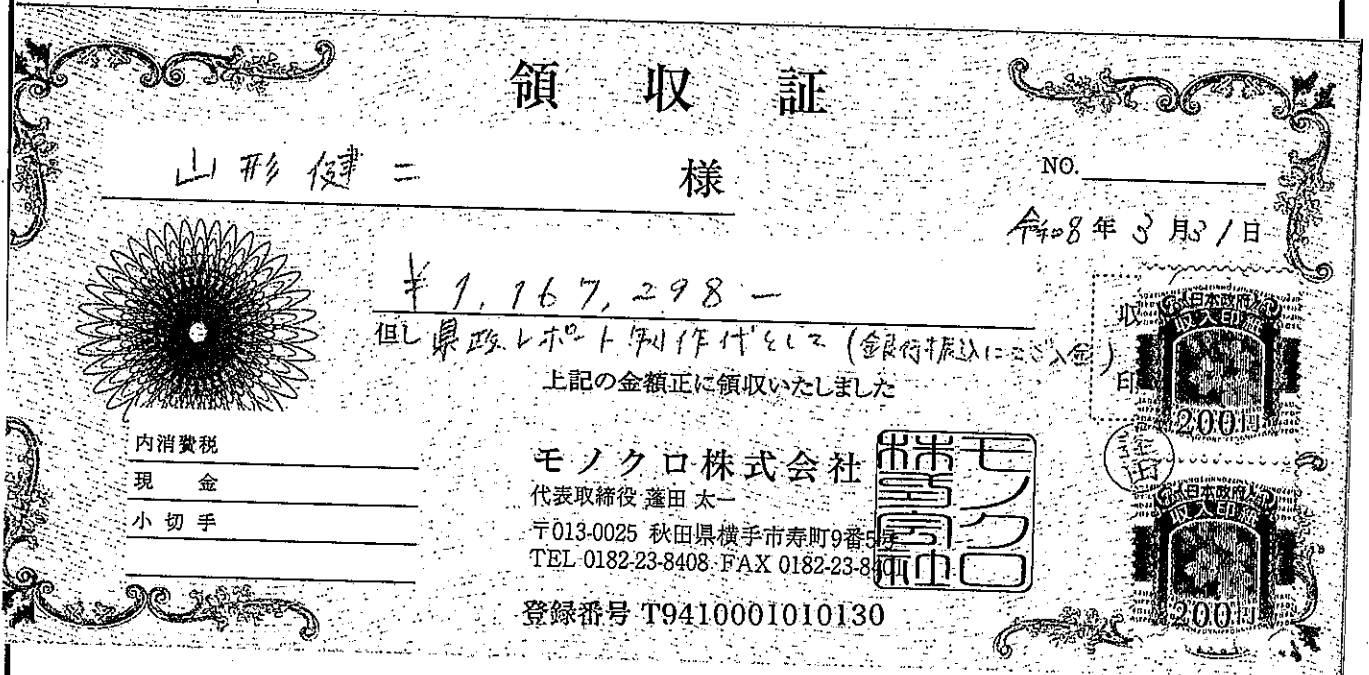 領収証
山形健二 様
NO.
令和8年3月31日
¥1,167,298-
但し県政レポート制作代として(銀行振込にてご入金)
上記の金額正に領収いたしました
収
印
日本政府
収入印紙
200円
内消費税
現金
小切手
モノクロ株式会社
代表取締役 蓬田 太一
〒013-0025 秋田県横手市寿町9番5号
TEL 0182-23-8408 FAX 0182-23-840
登録番号 T9410001010130
モノクロ株式会社
日本政府
収入印紙
200円